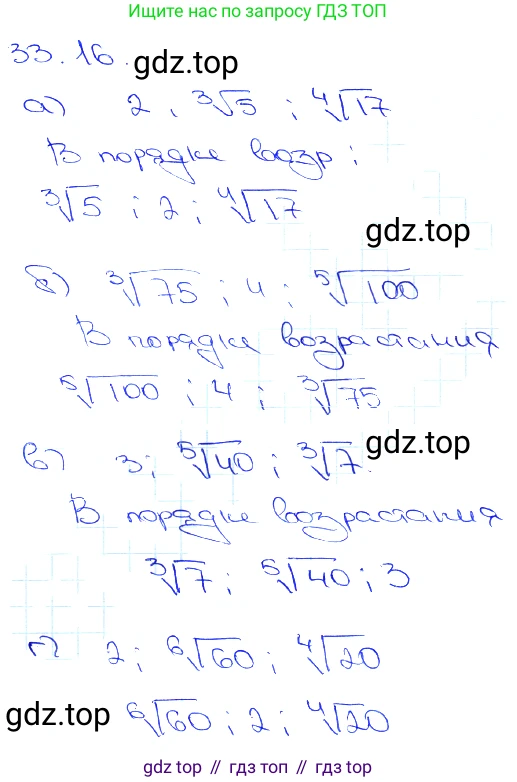 Ищите нас по запросу GDZ ТОП
33.16.
gdz.top
а) 2, ∛5; ∜17
В порядке возр:
∛5; 2; ∜17
gdz.top
б) ∛75; 4; ⁵√100
В порядке возрастания
⁵√100; 4; ∛75
в) 3; ⁵√40; ∛7.
gdz.top
В порядке возрастания
∛7; ⁵√40; 3
г) 2; ⁶√60; ∜20
gdz.top
⁶√60; 2; ∜20
gdz топ // гдз топ // gdz top